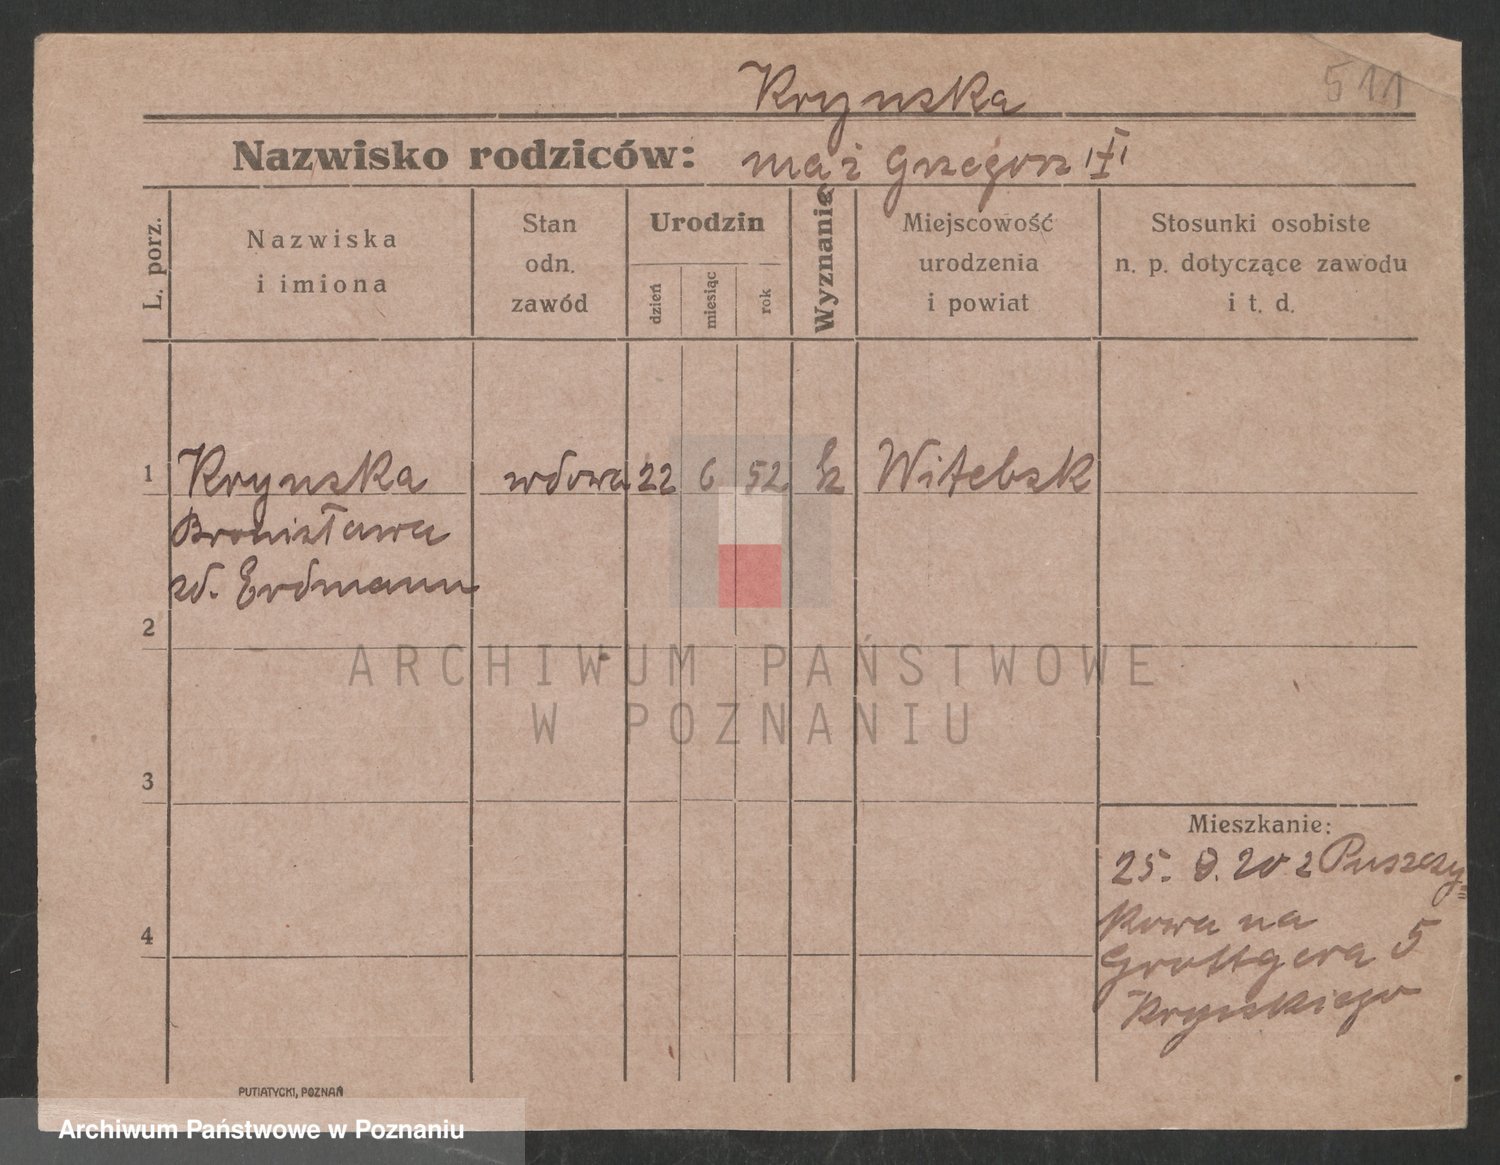 Krynska
511
Nazwisko rodziców: mąż Grzegorz
L. porz.
Nazwiska
i imiona
Stan
odn.
zawód
Urodzin
dzień
miesiąc
rok
Wyznanie
Miejscowość
urodzenia
i powiat
Stosunki osobiste
n. p. dotyczące zawodu
i t. d.
1
Krynska wdowa 22 6 52 k Witebsk
Bronisława
zd. Erdmann
2
ARCHIWUM PAŃSTWOWE
W POZNANIU
3
4
Mieszkanie:
25. 8. 20 z Puszczy=
kowa na
Grottgera 5
Krynskiego
PUTIATYCKI, POZNAŃ
Archiwum Państwowe w Poznaniu